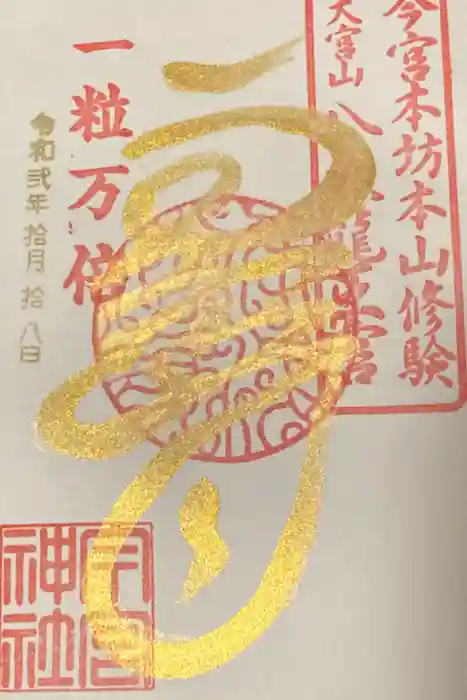 今宮本坊本山修験
大宮山 八 龍王宮
壽
一粒万倍
令和弐年 拾月 拾八日
今宮
神社